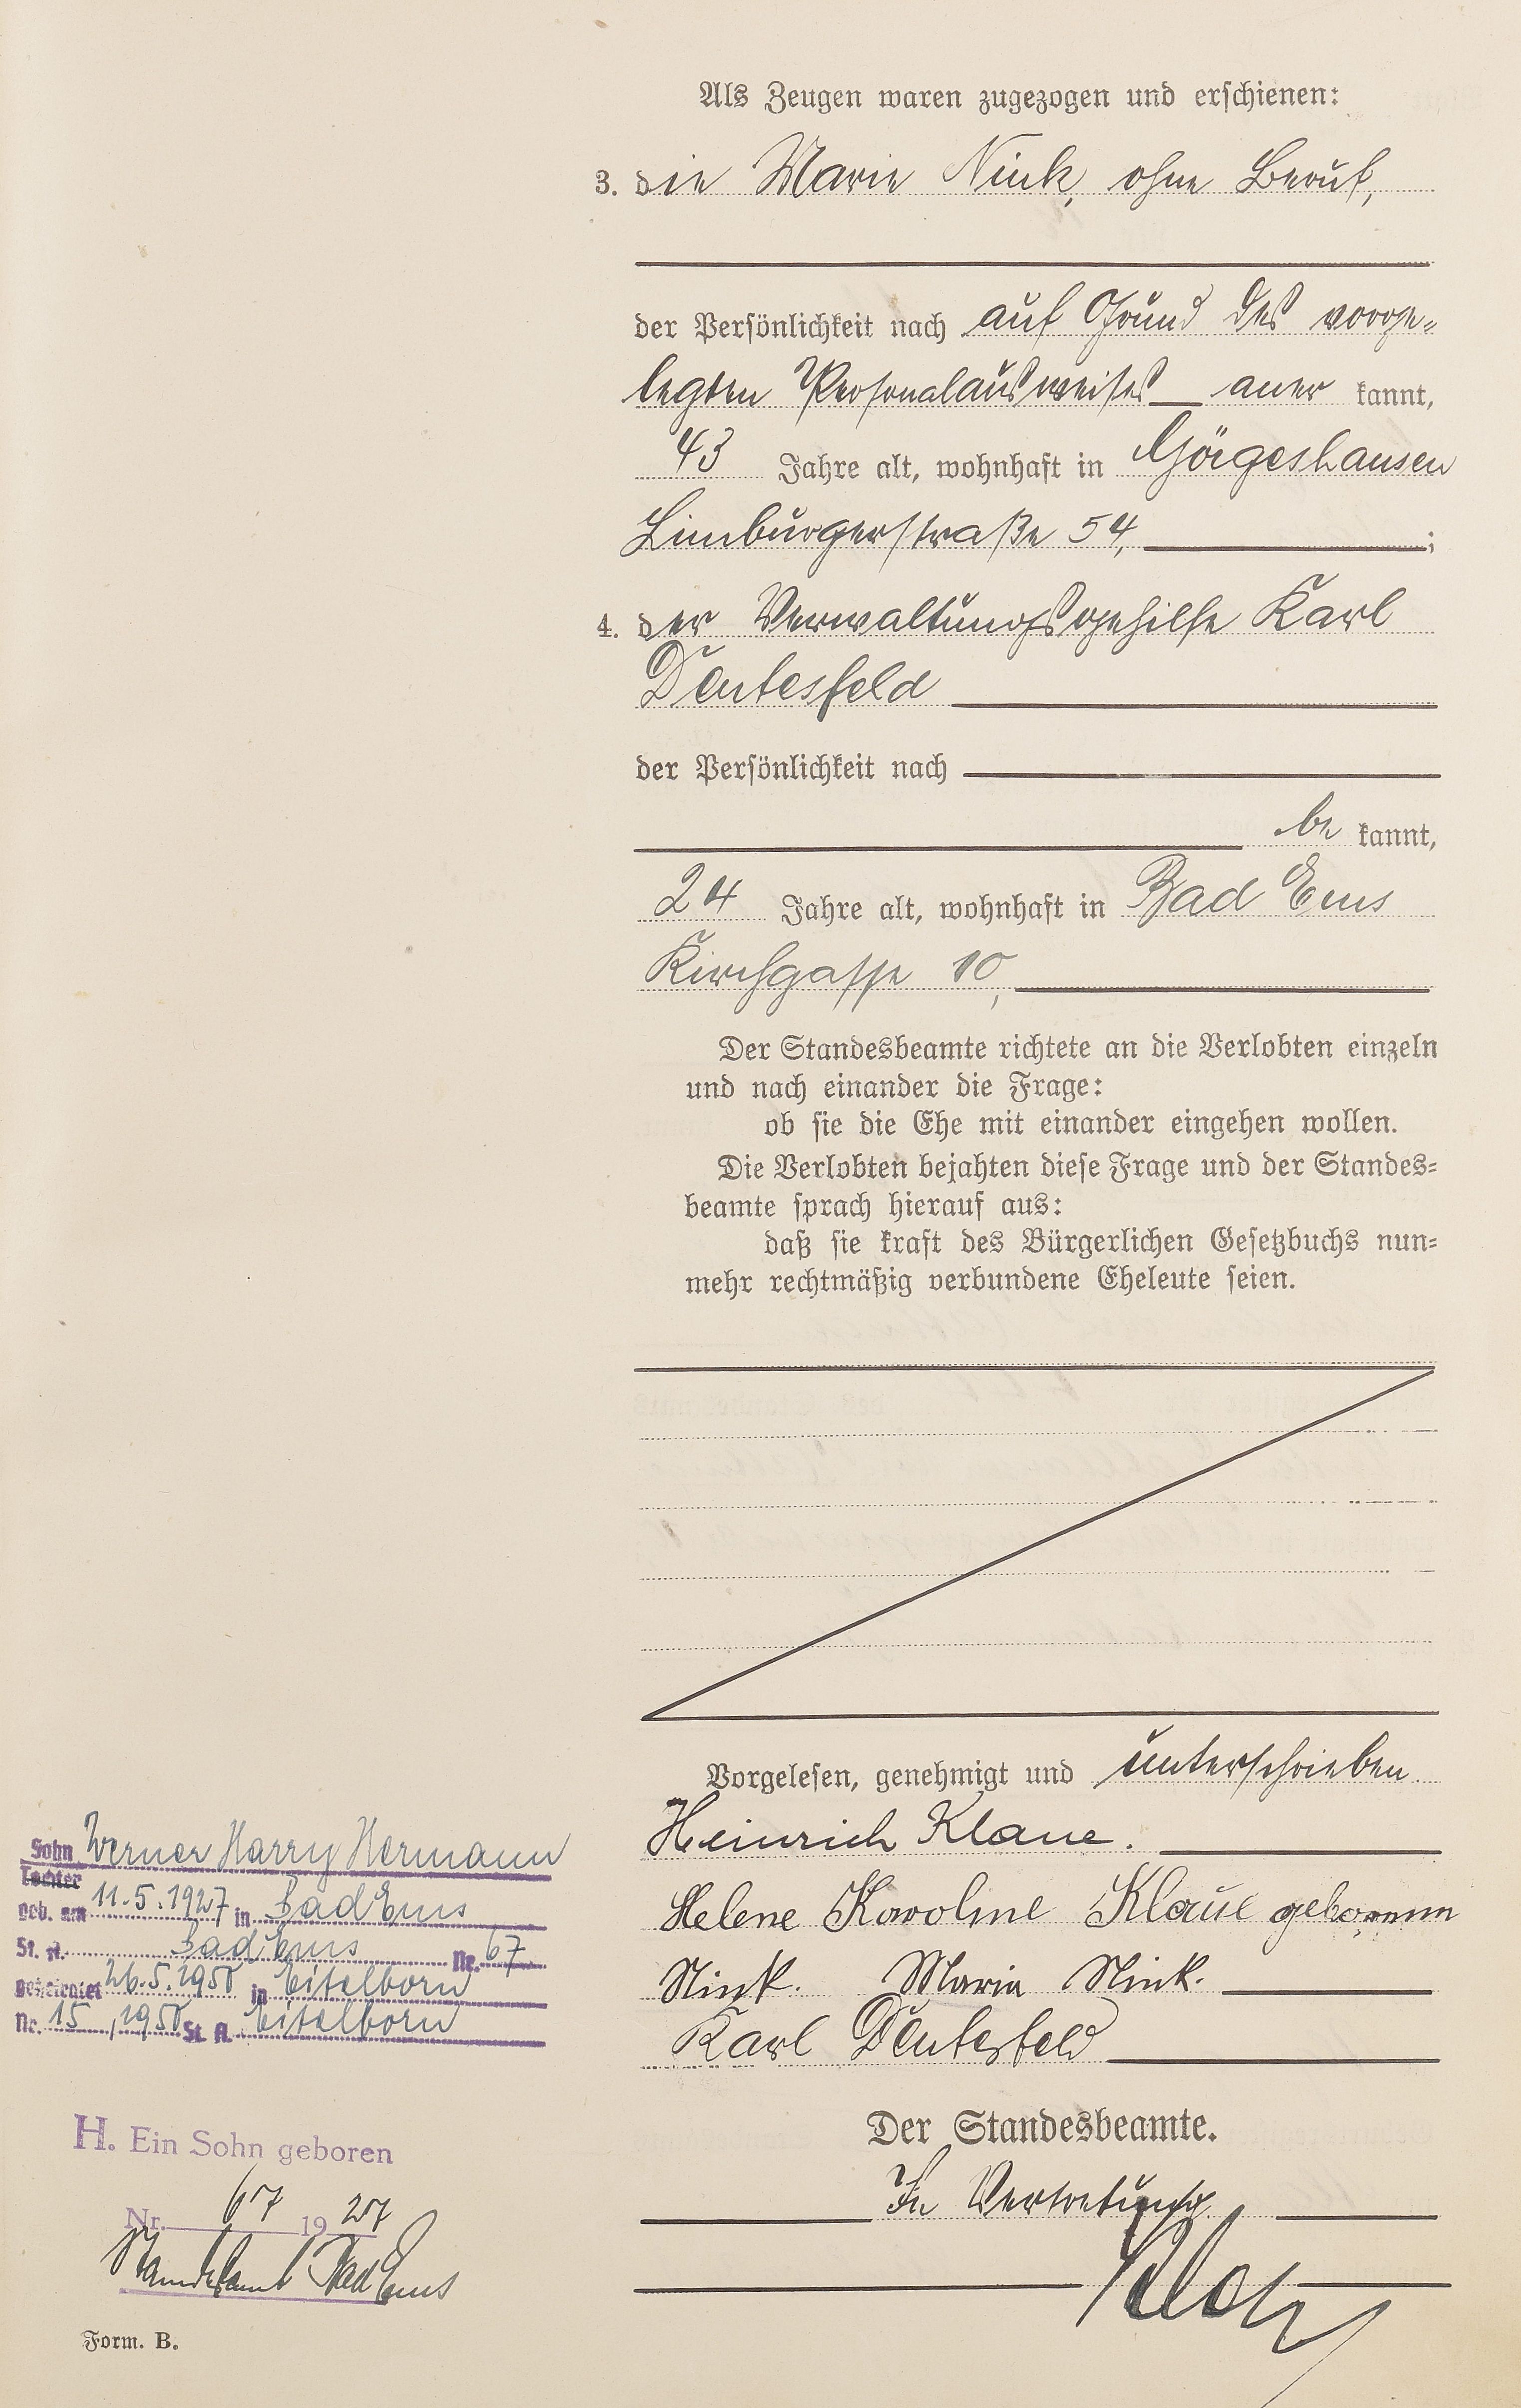 Als Zeugen waren zugezogen und erschienen:
3. die Marie Nink, ohne Beruf,
der Persönlichkeit nach auf Grund des vorge-
legten Personalausweises aner kannt,
43 Jahre alt, wohnhaft in Görgeshausen
Limburgerstraße 54, ;
4. der Verwaltungsgehilfe Karl
Dentesfeld
der Persönlichkeit nach
be kannt,
24 Jahre alt, wohnhaft in Bad Ems
Kirchgasse 10,
Der Standesbeamte richtete an die Verlobten einzeln
und nach einander die Frage:
ob sie die Ehe mit einander eingehen wollen.
Die Verlobten bejahten diese Frage und der Standes-
beamte sprach hierauf aus:
daß sie kraft des Bürgerlichen Gesetzbuchs nun-
mehr rechtmäßig verbundene Eheleute seien.
Vorgelesen, genehmigt und unterschrieben
Heinrich Klaue.
Helene Karoline Klaue geborenen
Nink. Maria Nink.
Karl Dentesfeld
Der Standesbeamte.
In Vertretung
Sohn Werner Harry Hermann
Tochter
geb. am 11.5.1927 in Bad Ems
St. A. Bad Ems Nr. 67
geheiratet 26.5.1950 in Eitelborn
Nr. 15, 1950 St. A. Eitelborn
H. Ein Sohn geboren
Nr. 67 19 27
Standesamt Bad Ems
Form. B.